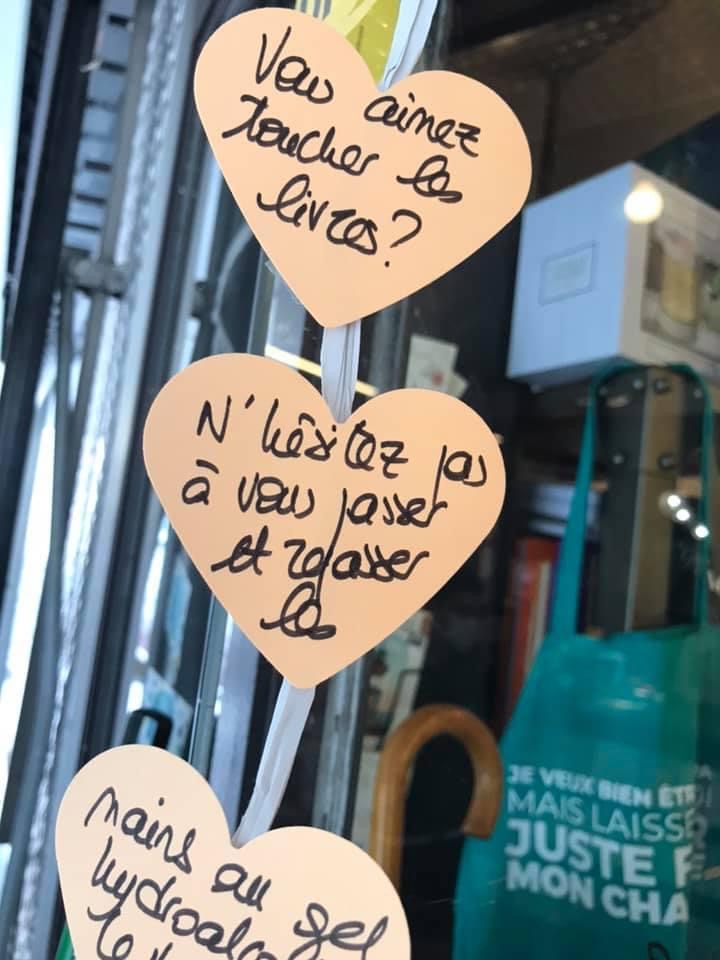 Vous aimez
toucher les
livres?
N'hésitez pas
à vous passer
et repasser
les
mains au gel
JE VEUX BIEN
MAIS LAISSE
JUSTE
MON